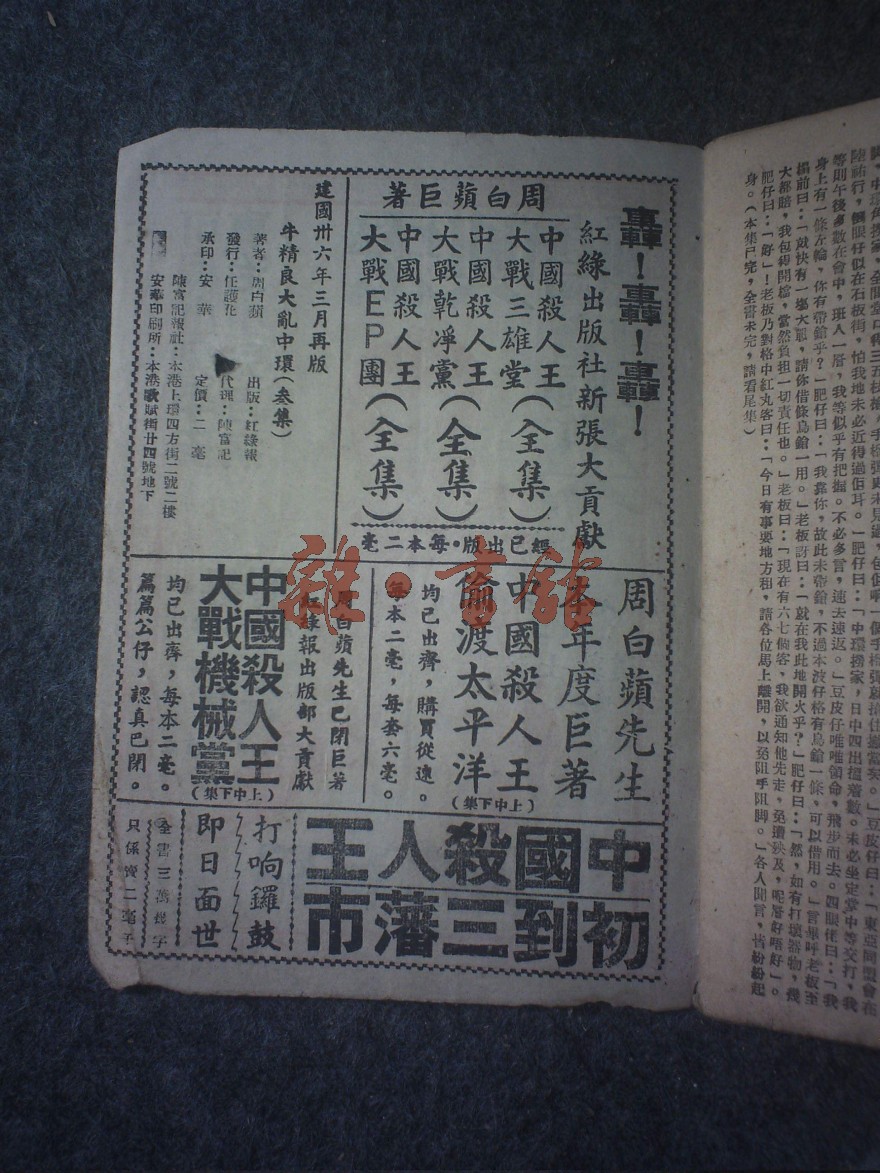 腳，中環角撈家，全間堂口得三五枝槍，
陸祐行，個眼仔似在石板街，怕我地未必近得過佢耳。」肥仔曰：「中環撈家，日中四出搵着數。未必坐定堂中等交打，我
等則午後多數在會中，班人一層，我等似乎有把握。不必多言，速去速返。」豆皮仔唯唯領命，飛步而去。四眼佬曰：「我
身上有一條左輪，你有帶鎗乎？」肥仔曰：「我靠你，故此未帶鎗，不過本波仔格有鳥鎗一條，可以借用。」言畢呼老板至
榻前曰：「就快有一塲大耶，請你借條鳥鎗一用。」老板訝曰：「就在我此地開火乎？」肥仔曰：「然，如有打壞器物，幾
大都賠，我包得開檔，當然負担一切責任也。」老板曰：「現在有六七個客，我欲通知他先走，免遭殃及，呢層好唔好」。
肥仔曰：「好」！老板乃對格中紅丸客曰：「今日有事要地方租，請各位馬上離開，以免阻手阻脚。」各人聞言，皆紛紛起
身。（本集已完，全書未完，請看尾集）
轟！轟！轟！
紅綠出版社新張大貢獻
周白蘋巨著
中國殺人王
大戰三雄堂（全集）
中國殺人王
大戰乾淨黨（全集）
中國殺人王
大戰EP團（全集）
經已出版・每本二毫
建國卅六年三月再版
牛精良大亂中環（叁集）
著者：周白蘋
出版：紅綠報
發行：任護花
代理：陳富記
承印：安華
定價：二毫
陳富記報社：本港上環四方街二號二樓
安華印刷所：本港歌賦街廿四號地下
周白蘋先生
本年度巨著
中國殺人王
偷渡太平洋
（上中下集）
均已出齊，購買從速。
每本二毫，每套六毫。
周白蘋先生已閉巨著
紅綠報出版部大貢獻
中國殺人王
大戰機械黨
（上中下集）
均已出齊，每本二毫。
篇篇公仔，認真巴閉。
中國殺人王
初到三藩市
打响鑼鼓
即日面世
全書三萬餘字
只係賣二毫子
雜・書館